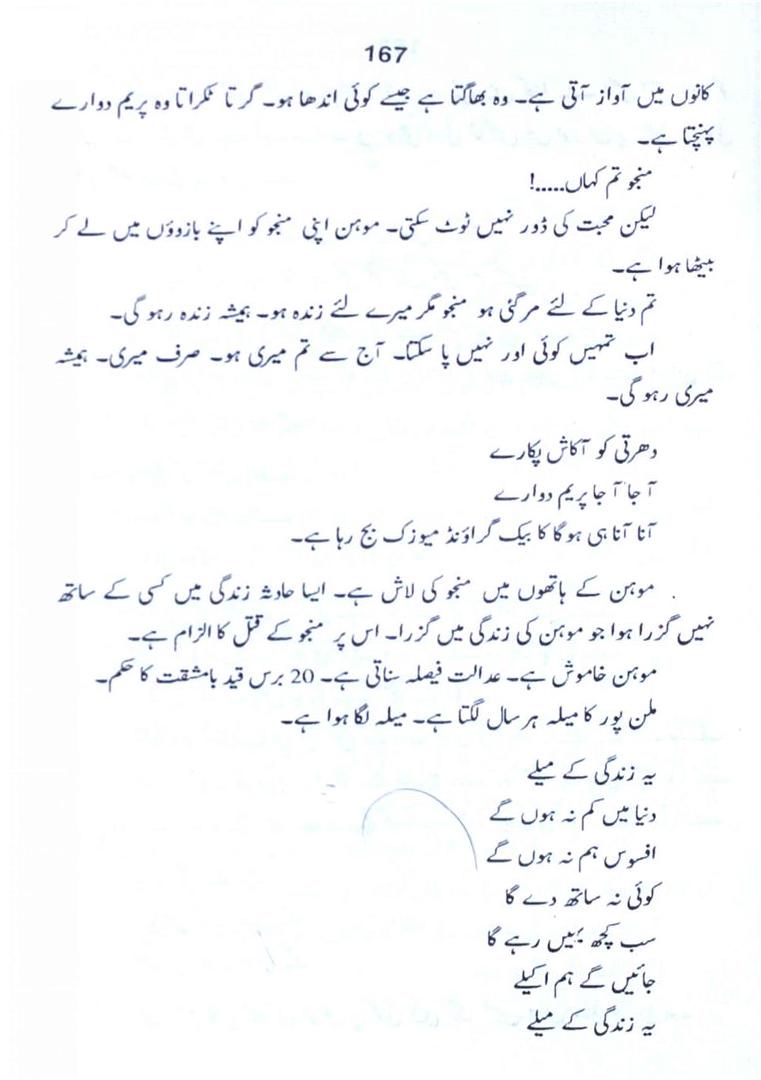 167
کانوں میں آواز آتی ہے۔ وہ بھاگتا ہے جیسے کوئی اندھا ہو۔ گرتا ٹکراتا وہ پریم دوارے
پہنچتا ہے۔
منجو تم کہاں.....!
لیکن محبت کی ڈور نہیں ٹوٹ سکتی۔ موہن اپنی منجو کو اپنے بازوؤں میں لے کر
بیٹھا ہوا ہے۔
تم دنیا کے لئے مر گئی ہو منجو مگر میرے لئے زندہ ہو۔ ہمیشہ زندہ رہو گی۔
اب تمہیں کوئی اور نہیں پا سکتا۔ آج سے تم میری ہو۔ صرف میری۔ ہمیشہ
میری رہو گی۔
دھرتی کو آکاش پکارے
آ جا آ جا پریم دوارے
آنا آنا ہی ہوگا کا بیک گراؤنڈ میوزک بج رہا ہے۔
موہن کے ہاتھوں میں منجو کی لاش ہے۔ ایسا حادثہ زندگی میں کسی کے ساتھ
نہیں گزرا ہوا جو موہن کی زندگی میں گزرا۔ اس پر منجو کے قتل کا الزام ہے۔
موہن خاموش ہے۔ عدالت فیصلہ سناتی ہے۔ 20 برس قید بامشقت کا حکم۔
ملن پور کا میلہ ہر سال لگتا ہے۔ میلہ لگا ہوا ہے۔
یہ زندگی کے میلے
دنیا میں کم نہ ہوں گے
افسوس ہم نہ ہوں گے
کوئی نہ ساتھ دے گا
سب کچھ یہیں رہے گا
جائیں گے ہم اکیلے
یہ زندگی کے میلے